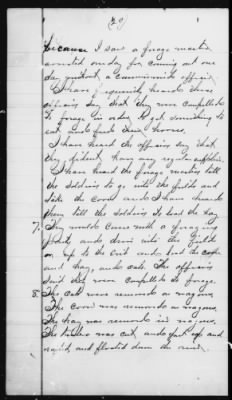 (20)
because I saw a forage master
arrested one day for coming out one
day without a commissioned officer.
I have frequently heard these
officers say that they were compelled
to forage in order to get something to
eat and feed their horses.
I have heard the officers say that
they didn't have any regular supplies.
I have heard the forage masters tell
the soldiers to go into the fields and
take the corn and I have heard
them tell the soldiers to load the hay
7. They would come with a foraging
party and drive into the fields
or up to the crib and load the corn
and hay, and oats. The officers
said they were compelled to forage.
8. The oats were removed in wagons.
The corn was removed in wagons.
The hay was removed in wagons.
The timber was cut and put up and
rafted and floated down the river.